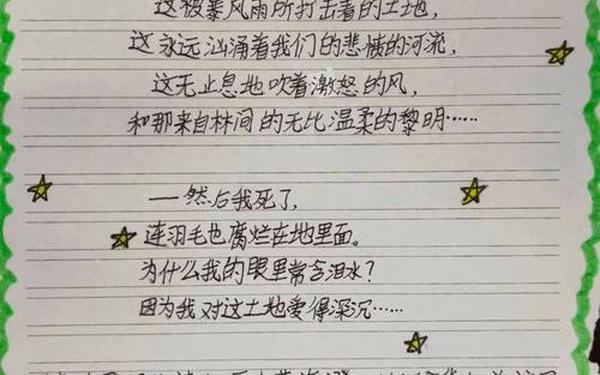 这被暴风雨所打击着的土地,
这永远汹涌着我们的悲愤的河流,
这无止息地吹着激怒的风,
和那来自林间的无比温柔的黎明……
——然后我死了,
连羽毛也腐烂在地里面。
为什么我的眼里常含泪水?
因为我对这土地爱得深沉……